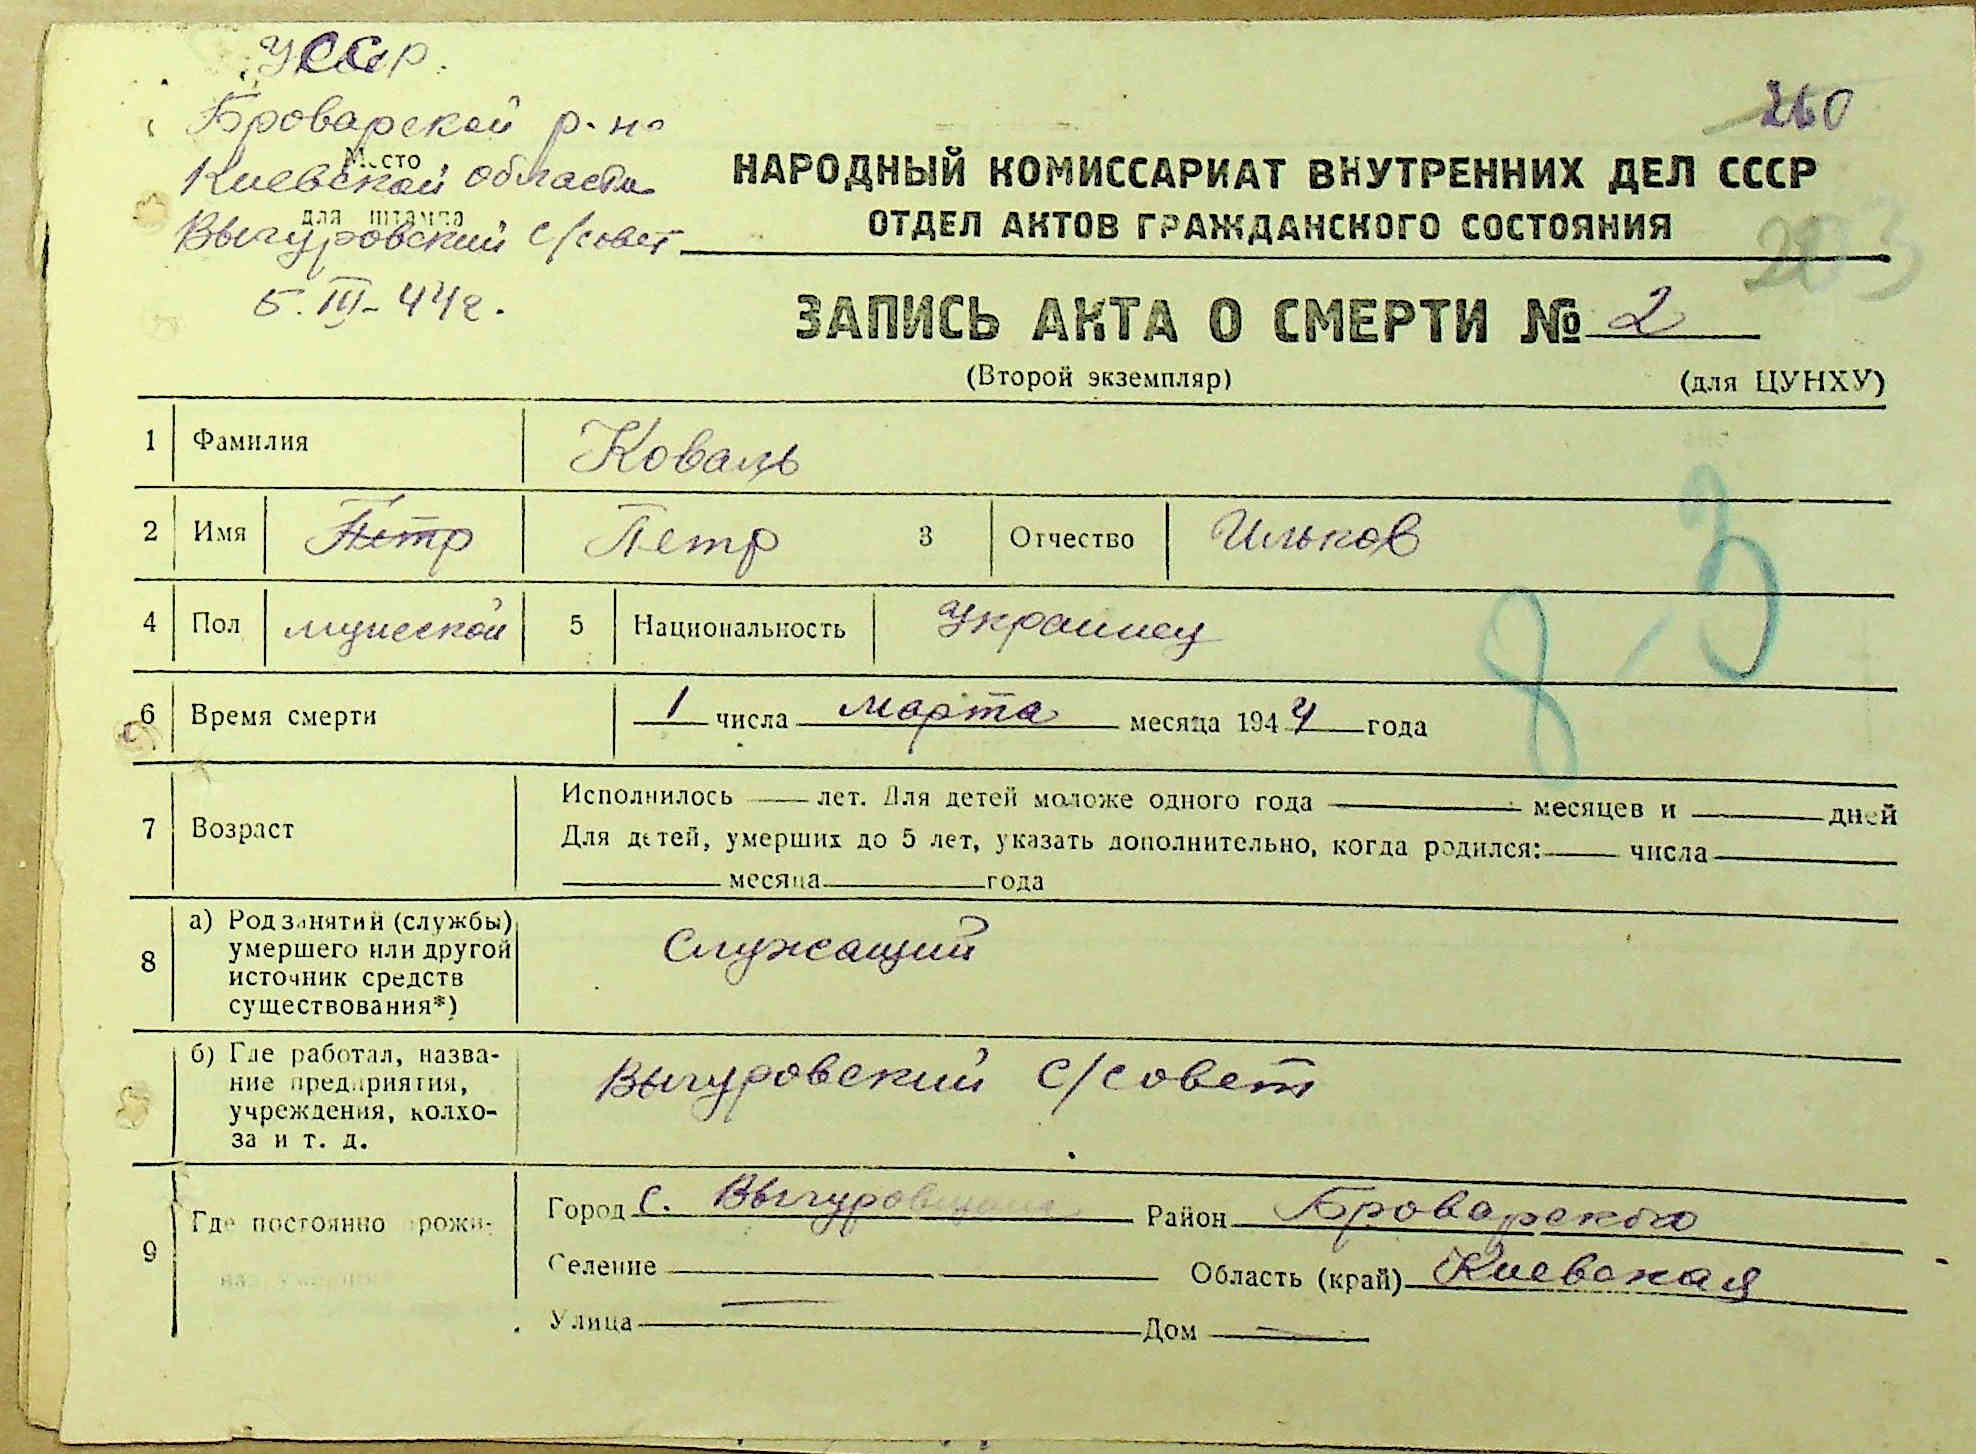 УССР.
260
Броварской р-н
Место
Киевской области
для штампа
Выгуровский с/совет
5.III-44г.
НАРОДНЫЙ КОМИССАРИАТ ВНУТРЕННИХ ДЕЛ СССР
ОТДЕЛ АКТОВ ГРАЖДАНСКОГО СОСТОЯНИЯ
203
ЗАПИСЬ АКТА О СМЕРТИ № 2
(Второй экземпляр) (для ЦУНХУ)
1 Фамилия Коваль
2 Имя Петр Петр 3 Отчество Ильков
4 Пол мужской 5 Национальность украинец
8-3
6 Время смерти 1 числа марта месяца 1944 года
7 Возраст Исполнилось лет. Для детей моложе одного года месяцев и дней
Для детей, умерших до 5 лет, указать дополнительно, когда родился: числа
месяца года
8 а) Род занятий (службы) умершего или другой источник средств существования*) Служащий
б) Где работал, назва-
ние предприятия,
учреждения, колхо-
за и т. д.
Выгуровский с/совет
9 Где постоянно прожи-
Город с. Выгуровщина Район Броварского
Селение Область (край) Киевская
Улица Дом